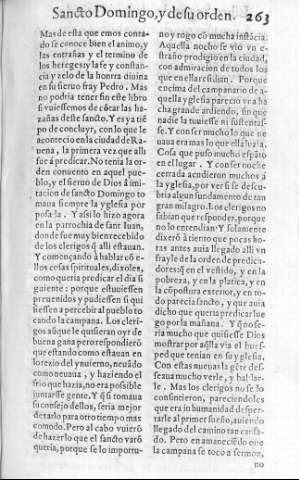 Sancto Domingo, y de su orden. 263
Mas de esta que emos conta-
do se conoce bien el animo, y
las entrañas y el termino de
los hereges y la fe y constan-
cia y zelo de la honrra diuina
en su sieruo fray Pedro. Mas
no podria tener fin este libro
si vuiessemos de cõtar las ha-
zañas deste sancto. Y es ya tiẽ
po de concluyr, con lo que le
acontecio en la ciudad de Ra-
uena, la primera vez que alli
fue á predicar. No tenia la or-
den conuento en aquel pue-
blo, y el sieruo de Dios á imi-
tacion de sancto Domingo to
maua siempre la yglesia por
posada. Y assi lo hizo agora
en la parrochia de sant Iuan,
donde fue muy bien recebido
de los clerigos q̃ alli estauan.
Y començando à hablar cõ e-
llos cosas spirituales, dixoles,
como queria predicar el dia si
guiente: porque estuuiessen
preuenidos y pudiessen si qui
siessen apercibir al pueblo to
cando la campana. Los cleri-
gos aũque le quisieran oyr de
buena gana pero respondierõ
que estando como estauan en
lo rezio del ynuierno, neuãdo
como neuaua, y haziendo el
frio que hazia, no era possible
juntarse gente. Y q̃ si tomaua
su consejo dellos, seria mejor
dexarlo para otro tiempo mas
comodo. Pero al cabo vuierõ
de hazerlo que el sancto varõ
queria, porque se lo importu-
no y rogo cõ mucha instãcia.
Aquella noche se vio vn e-
straño prodigio en la ciudad,
con admiracion de todos los
que en ella residian. Porque
encima del campanario de a-
quella yglesia parecio vna ha
cha grande ardiendo, sin que
nadie la tuuiesse ni sustentas-
se. Y con ser mucho lo que ne
uaua era mas lo que ella luzia.
Cosa que puso mucho espãto
en el lugar. Y con ser noche
cerrada acudieron muchos á
la yglesia, por ver si se descu-
bria algun fundamento de tan
gran milagro. Los clerigos no
sabian que responder, porque
no lo entendian. Y solamente
dixerõ á tiento que pocas ho-
ras antes auia llegado alli vn
frayle de la orden de predica-
dores: q̃ en el vestido, y en la
pobreza, y en la platica, y en
la cõpostura exterior, y en to-
do parecia sancto, y que auia
dicho que queria predicar lue
go por la mañana. Y q̃ no se-
ria mucho que quisiesse Dios
mostrar por aq̃lla via el hues-
ped que tenian en su yglesia.
Con estas nueuas la gẽte des-
seaua mucho verle, y hablar-
le. Mas los clerigos no se lo
consintieron, pareciendoles
que era inhumanidad desper-
tarle al primer sueño, auiendo
llegado del camino tan cansa-
do. Pero en amaneciẽdo que
la campana se toco a sermon,
no